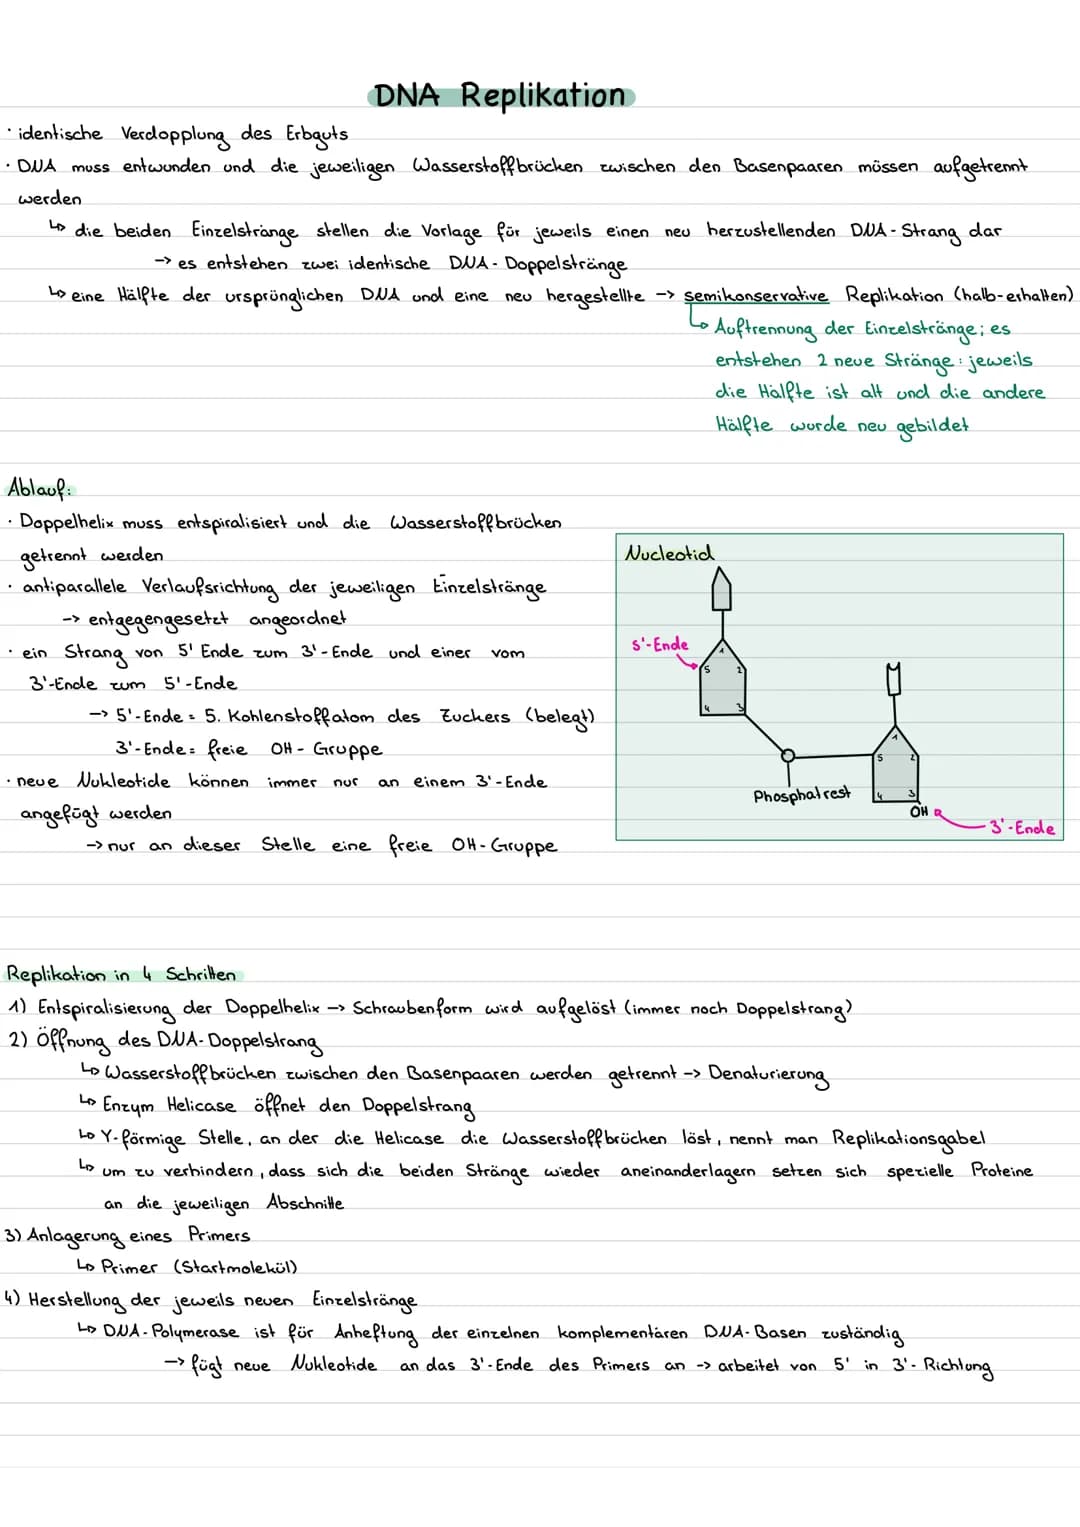 DNA Replikation
· identische Verdopplung des Erbguts
· DNA muss entwunden und die jeweiligen Wasserstoffbrücken zwischen den Basenpaaren müssen aufgetrennt
werden
↳ die beiden Einzelstränge stellen die Vorlage für jeweils einen neu herzustellenden DNA-Strang dar
-> es entstehen zwei identische DNA-Doppelstränge
↳ eine Hälfte der ursprünglichen DNA und eine neu hergestellte -> semikonservative Replikation (halb-erhalten)
↳ Auftrennung der Einzelstränge; es
entstehen 2 neue Stränge: jeweils
die Hälfte ist alt und die andere
Hälfte wurde neu gebildet
Ablauf:
· Doppelhelix muss entspiralisiert und die Wasserstoffbrücken
getrennt werden
· antiparallele Verlaufsrichtung der jeweiligen Einzelstränge
-> entgegengesetzt angeordnet
· ein Strang von 5' Ende zum 3'-Ende und einer vom
3'-Ende zum 5'-Ende
-> 5'-Ende = 5. Kohlenstoffatom des Zuckers (belegt)
3'-Ende = freie OH-Gruppe
· neue Nukleotide können immer nur an einem 3'-Ende
angefügt werden
-> nur an dieser Stelle eine freie OH-Gruppe
Nucleotid
5'-Ende
1
5 2
4 3
1
5 2
4 3
Phosphatrest
OH
3'-Ende
Replikation in 4 Schritten
1) Entspiralisierung der Doppelhelix -> Schraubenform wird aufgelöst (immer noch Doppelstrang)
2) Öffnung des DNA-Doppelstrang
↳ Wasserstoffbrücken zwischen den Basenpaaren werden getrennt -> Denaturierung
↳ Enzym Helicase öffnet den Doppelstrang
↳ Y-förmige Stelle, an der die Helicase die Wasserstoffbrücken löst, nennt man Replikationsgabel
↳ um zu verhindern, dass sich die beiden Stränge wieder aneinanderlagern setzen sich spezielle Proteine
an die jeweiligen Abschnitte
3) Anlagerung eines Primers
↳ Primer (Startmolekül)
4) Herstellung der jeweils neuen Einzelstränge
↳ DNA-Polymerase ist für Anheftung der einzelnen komplementären DNA-Basen zuständig
-> fügt neue Nukleotide an das 3'-Ende des Primers an -> arbeitet von 5' in 3'-Richtung